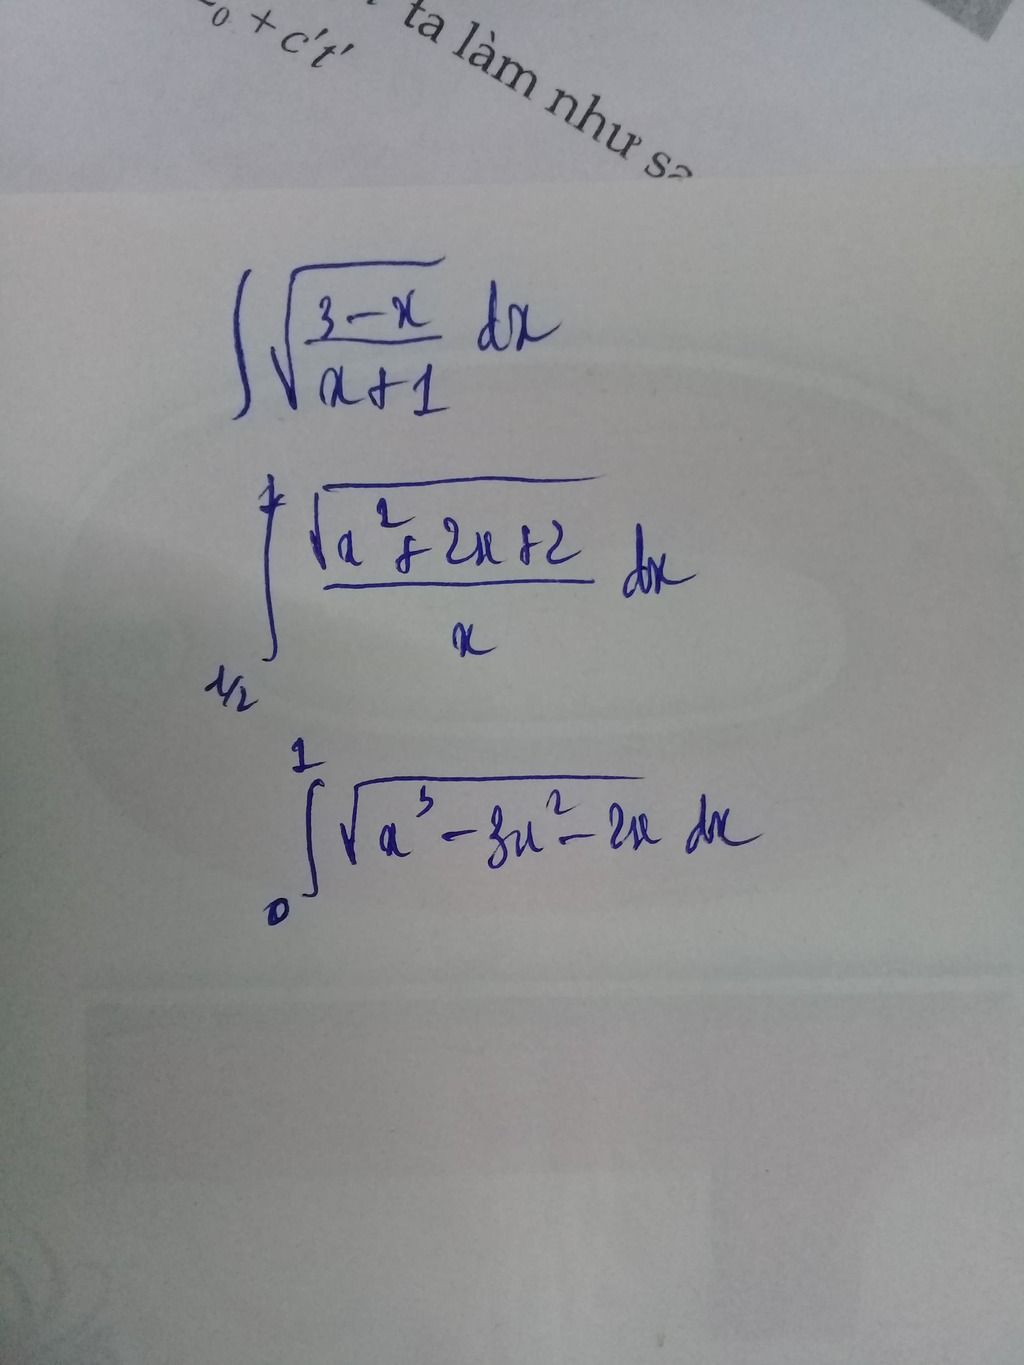 0 + c't'
ta làm như sa
∫ √((3-x)/(x+1)) dx
∫_{1/2}^{1} √(x²+2x+2)/x dx
∫_0^1 √(x³-3x²-2x) dx